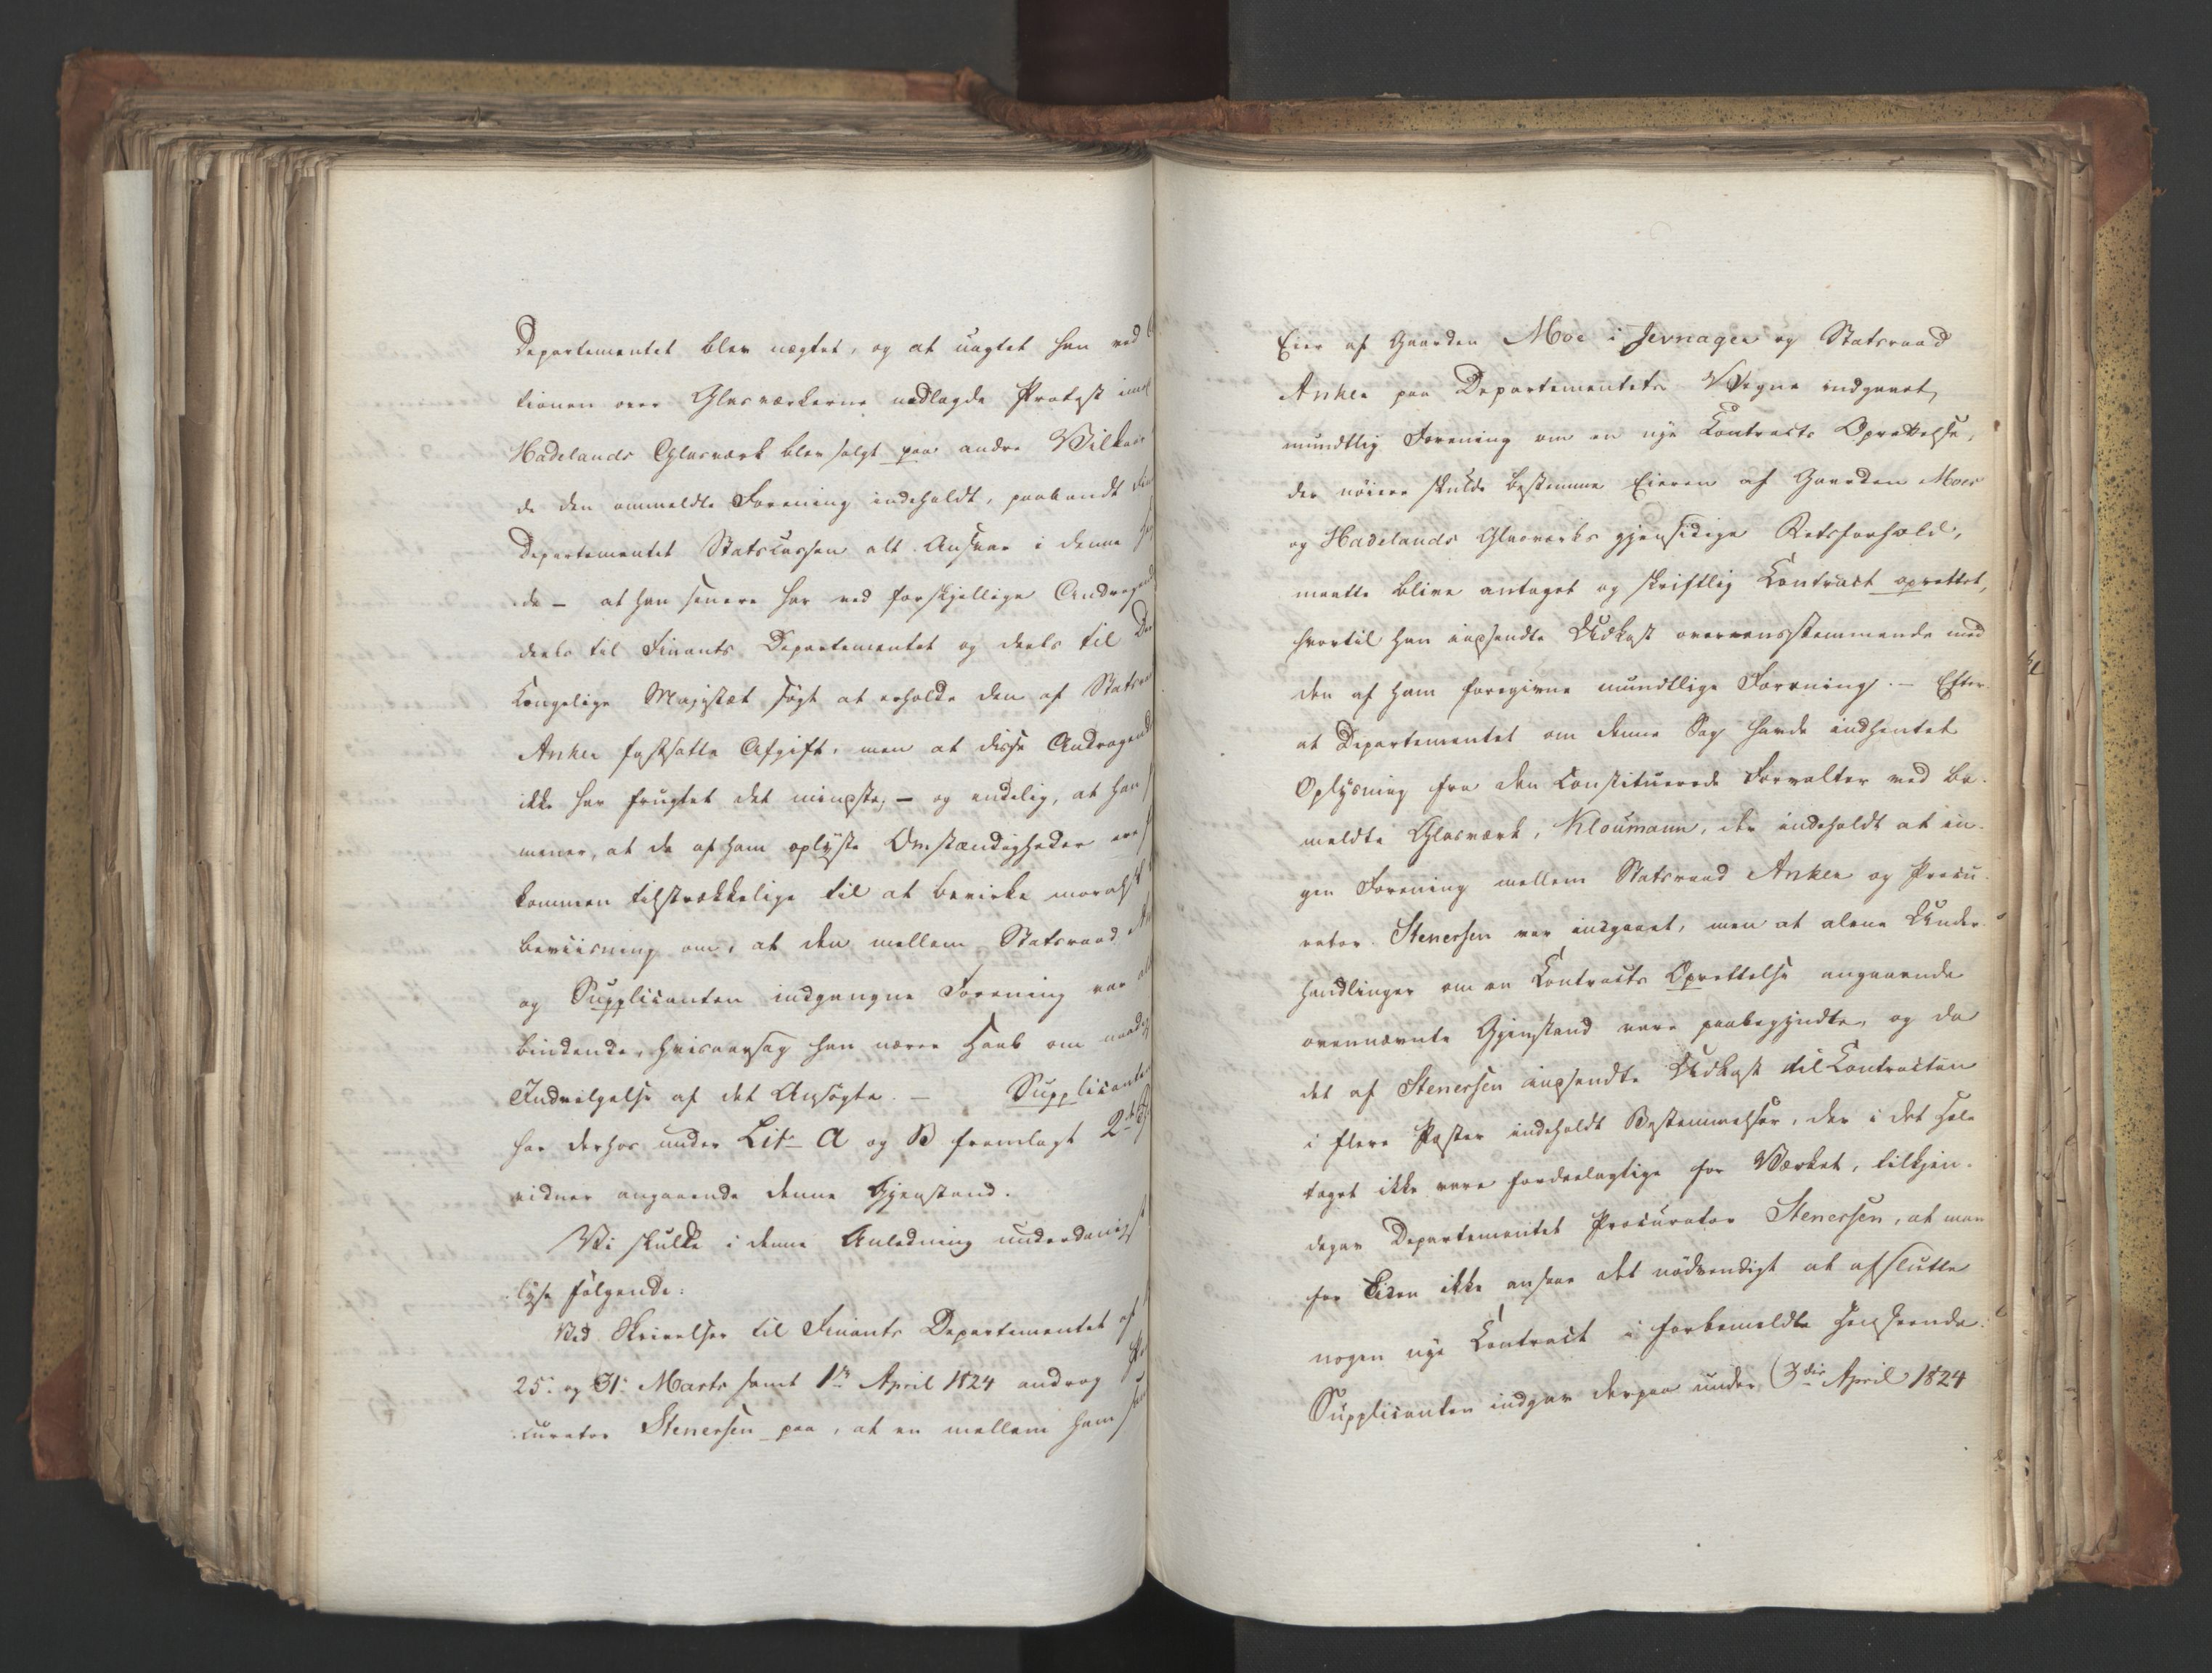 Departementet blev nægtet, og at uagtet han ved
tionen over Glasværkerne nedlagde Protest imod
Hadelands Glasværk blev solgt paa andre Vilkaar
de den ommeldte Forening indeholdt, paabandt
Departementet Statscassen alt Ansvar i denne
de – at han senere har ved forskjellige Andragend
deels til Finants Departementet og deels til
Kongelige Majestæt søgt at erholde den af Statsra
Anker fastsatte Afgift, men at disse Andragend
ikke har frugtet det mindste, – og endelig, at han
mener, at de af ham oplyste Omstændigheder ere
kommen tilstrækkelige til at bevirke moralsk
beviisning om, at den mellem Statsraad
og Supplicanten indgangne Forening var
bindende, hvisaarsag han nærer Haab om naadig
Indvilgelse af det Ansøgte. – Supplicanten
har derhos under Litr A og B fremlagt 2de
vidner angaaende denne Gjenstand.
Vi skulle i denne Anledning underdanigst
lyse følgende:
Ved Skrivelser til Finants Departementet af
25. og 31. Marts samt 1ste April 1824 androg
curator Stenersen paa, at en mellem ham
Eier af Gaarden Moe i Jevnager og Statsraad
Anker paa Departementets Vegne indgaaet,
mundtlig Forening om en nye Contracts Oprettelse,
der nøiere skulde bestemme Eieren af Gaarden Moes
og Hadelands Glasværks gjensidige Retsforhold,
maatte blive antaget og skriftlig Contract oprettet,
hvortil han indsendte Udkast overeensstemmende med
den af ham foregivne mundtlige Forening. – Efter
at Departementet om denne Sag havde indhentet
Oplysning fra den Constituerede Forvalter ved be-
meldte Glasværk, Kloumann, der indeholdt at in-
gen Forening mellem Statsraad Anker og Procu-
rator Stenersen var indgaaet, men at alene Under-
handlinger om en Contracts Oprettelse angaaende
ovennævnte Gjenstand vare paabegyndte, og da
det af Stenersen indsendte Udkast til Contracten
i flere Poster indeholdt Bestemmelser, der i det Hele
taget ikke vare fordeelagtige for Værket, tilkjen-
degav Departementet Procurator Stenersen, at man
for Tiden ikke ansaae det nødvendigt at afslutte
nogen nye Contract i forbemeldte Henseende.
Supplicanten indgav derpaa under 3die April 1824